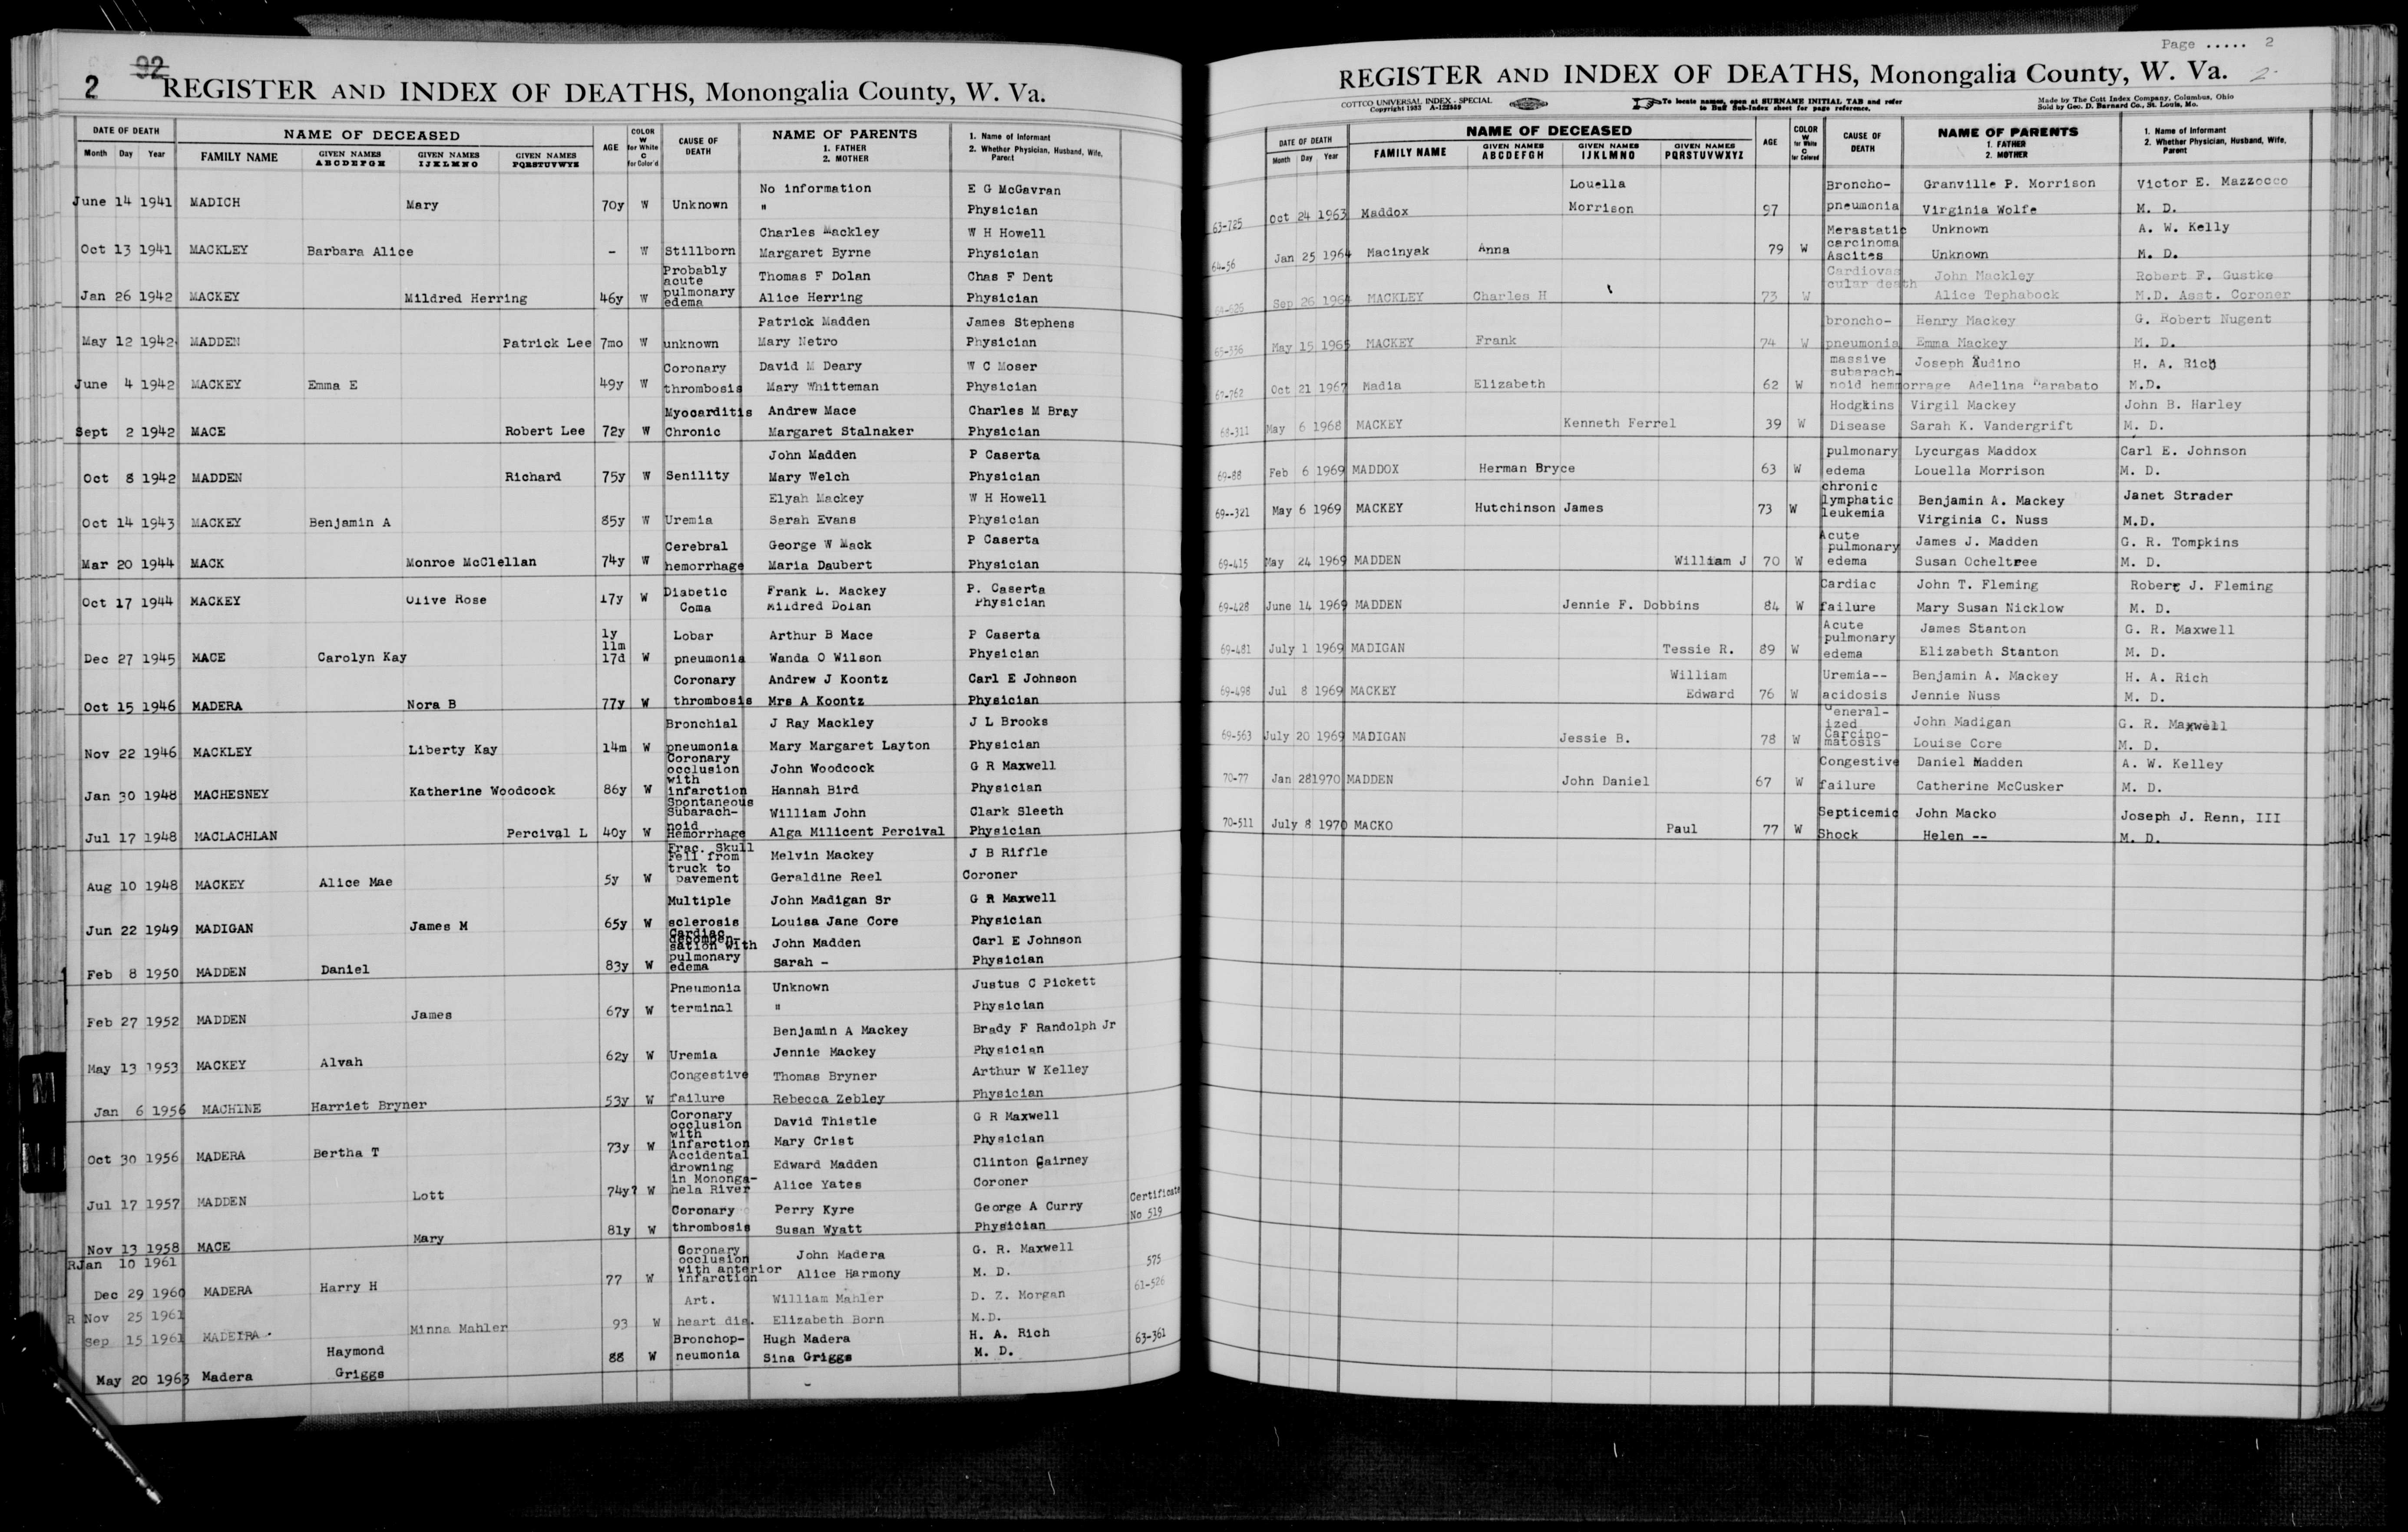 2 92
REGISTER AND INDEX OF DEATHS, Monongalia County, W. Va.
DATE OF DEATH NAME OF DECEASED AGE COLOR W for White C for Color'd CAUSE OF DEATH NAME OF PARENTS 1. FATHER 2. MOTHER 1. Name of Informant 2. Whether Physician, Husband, Wife, Parent
Month Day Year FAMILY NAME GIVEN NAMES ABCDEFGH GIVEN NAMES IJKLMNO GIVEN NAMES PQRSTUVWYZ
No information E G McGavran
June 14 1941 MADICH Mary 70y W Unknown " Physician
Charles Mackley W H Howell
Oct 13 1941 MACKLEY Barbara Alice - W Stillborn Margaret Byrne Physician
Probably acute Thomas F Dolan Chas F Dent
Jan 26 1942 MACKEY Mildred Herring 46y W pulmonary edema Alice Herring Physician
Patrick Madden James Stephens
May 12 1942 MADDEN Patrick Lee 7mo W unknown Mary Netro Physician
Coronary David M Deary W C Moser
June 4 1942 MACKEY Emma E 49y W thrombosis Mary Whitteman Physician
Myocarditis Andrew Mace Charles M Bray
Sept 2 1942 MACE Robert Lee 72y W Chronic Margaret Stalnaker Physician
John Madden P Caserta
Oct 8 1942 MADDEN Richard 75y W Senility Mary Welch Physician
Elyah Mackey W H Howell
Oct 14 1943 MACKEY Benjamin A 85y W Uremia Sarah Evans Physician
Cerebral George W Mack P Caserta
Mar 20 1944 MACK Monroe McClellan 74y W hemorrhage Maria Daubert Physician
Diabetic Frank L. Mackey P. Caserta
Oct 17 1944 MACKEY Olive Rose 17y W Coma Mildred Dolan Physician
1y 11m Lobar Arthur B Mace P Caserta
Dec 27 1945 MACE Carolyn Kay 17d W pneumonia Wanda O Wilson Physician
Coronary Andrew J Koontz Carl E Johnson
Oct 15 1946 MADERA Nora B 77y W thrombosis Mrs A Koontz Physician
Bronchial J Ray Mackley J L Brooks
Nov 22 1946 MACKLEY Liberty Kay 14m W pneumonia Mary Margaret Layton Physician
Coronary occlusion with John Woodcock G R Maxwell
Jan 30 1948 MACHESNEY Katherine Woodcock 86y W infarction Hannah Bird Physician
Spontaneous Subarach- William John Clark Sleeth
Jul 17 1948 MACLACHLAN Percival L 40y W noid Hemorrhage Alga Milicent Percival Physician
Frac. Skull Fell from Melvin Mackey J B Riffle
Aug 10 1948 MACKEY Alice Mae 5y W truck to pavement Geraldine Reel Coroner
Multiple John Madigan Sr G R Maxwell
Jun 22 1949 MADIGAN James M 65y W sclerosis Louisa Jane Core Physician
Cardiac decompen- sation with John Madden Carl E Johnson
Feb 8 1950 MADDEN Daniel 83y W pulmonary edema Sarah - Physician
Pneumonia Unknown Justus C Pickett
Feb 27 1952 MADDEN James 67y W terminal " Physician
Benjamin A Mackey Brady F Randolph Jr
May 13 1953 MACKEY Alvah 62y W Uremia Jennie Mackey Physician
Congestive Thomas Bryner Arthur W Kelley
Jan 6 1956 MACHINE Harriet Bryner 53y W failure Rebecca Zebley Physician
Coronary occlusion with David Thistle G R Maxwell
Oct 30 1956 MADERA Bertha T 73y W infarction Mary Crist Physician
Accidental drowning Edward Madden Clinton Cairney
Jul 17 1957 MADDEN Lott 74y? W in Mononga- hela River Alice Yates Coroner
Coronary Perry Kyre George A Curry Certificate
Nov 13 1958 MACE Mary 81y W thrombosis Susan Wyatt Physician No 519
RJan 10 1961 Coronary occlusion John Madera G. R. Maxwell 575
Dec 29 1960 MADERA Harry H 77 W with anterior infarction Alice Harmony M. D. 61-526
R Nov 25 1961 Art. William Mahler D. Z. Morgan
Sep 15 1961 MADEIRA Minna Mahler 93 W heart dis. Elizabeth Born M.D.
Haymond Bronchop- Hugh Madera H. A. Rich 63-361
May 20 1963 Madera Griggs 88 W neumonia Sina Griggs M. D.
Page ..... 2
REGISTER AND INDEX OF DEATHS, Monongalia County, W. Va. 2
COTTCO UNIVERSAL INDEX - SPECIAL
Copyright 1933 A-122859
To locate names, open at SURNAME INITIAL TAB and refer
to Buff Sub-Index sheet for page reference.
Made by The Cott Index Company, Columbus, Ohio
Sold by Geo. D. Barnard Co., St. Louis, Mo.
DATE OF DEATH NAME OF DECEASED AGE COLOR W for White C for Colored CAUSE OF DEATH NAME OF PARENTS 1. FATHER 2. MOTHER 1. Name of Informant 2. Whether Physician, Husband, Wife, Parent
Month Day Year FAMILY NAME GIVEN NAMES ABCDEFGH GIVEN NAMES IJKLMNO GIVEN NAMES PQRSTUVWXYZ
Louella Broncho- Granville P. Morrison Victor E. Mazzocco
63-725 Oct 24 1963 Maddox Morrison 97 pneumonia Virginia Wolfe M. D.
Merastatic carcinoma Unknown A. W. Kelly
64-56 Jan 25 1964 Macinyak Anna 79 W Ascites Unknown M. D.
Cardiovas John Mackley Robert F. Gustke
64-626 Sep 26 1964 MACKLEY Charles H 73 W cular death Alice Tephabock M.D. Asst. Coroner
broncho- Henry Mackey G. Robert Nugent
65-336 May 15 1965 MACKEY Frank 74 W pneumonia Emma Mackey M. D.
massive subarach- Joseph Audino H. A. Rich
67-762 Oct 21 1967 Madia Elizabeth 62 W noid hemmorrage Adelina Barabato M.D.
Hodgkins Virgil Mackey John B. Harley
68-311 May 6 1968 MACKEY Kenneth Ferrel 39 W Disease Sarah K. Vandergrift M. D.
pulmonary Lycurgas Maddox Carl E. Johnson
69-88 Feb 6 1969 MADDOX Herman Bryce 63 W edema Louella Morrison M. D.
chronic lymphatic Benjamin A. Mackey Janet Strader
69--321 May 6 1969 MACKEY Hutchinson James 73 W leukemia Virginia C. Nuss M.D.
Acute pulmonary James J. Madden G. R. Tompkins
69-415 May 24 1969 MADDEN William J 70 W edema Susan Ocheltree M. D.
Cardiac John T. Fleming Robert J. Fleming
69-428 June 14 1969 MADDEN Jennie F. Dobbins 84 W failure Mary Susan Nicklow M. D.
Acute pulmonary James Stanton G. R. Maxwell
69-481 July 1 1969 MADIGAN Tessie R. 89 W edema Elizabeth Stanton M. D.
William Uremia-- Benjamin A. Mackey H. A. Rich
69-498 Jul 8 1969 MACKEY Edward 76 W acidosis Jennie Nuss M. D.
General- ized John Madigan G. R. Maxwell
69-563 July 20 1969 MADIGAN Jessie B. 78 W Carcino- matosis Louise Core M. D.
Congestive Daniel Madden A. W. Kelley
70-77 Jan 28 1970 MADDEN John Daniel 67 W failure Catherine McCusker M. D.
Septicemic John Macko Joseph J. Renn, III
70-511 July 8 1970 MACKO Paul 77 W Shock Helen -- M. D.